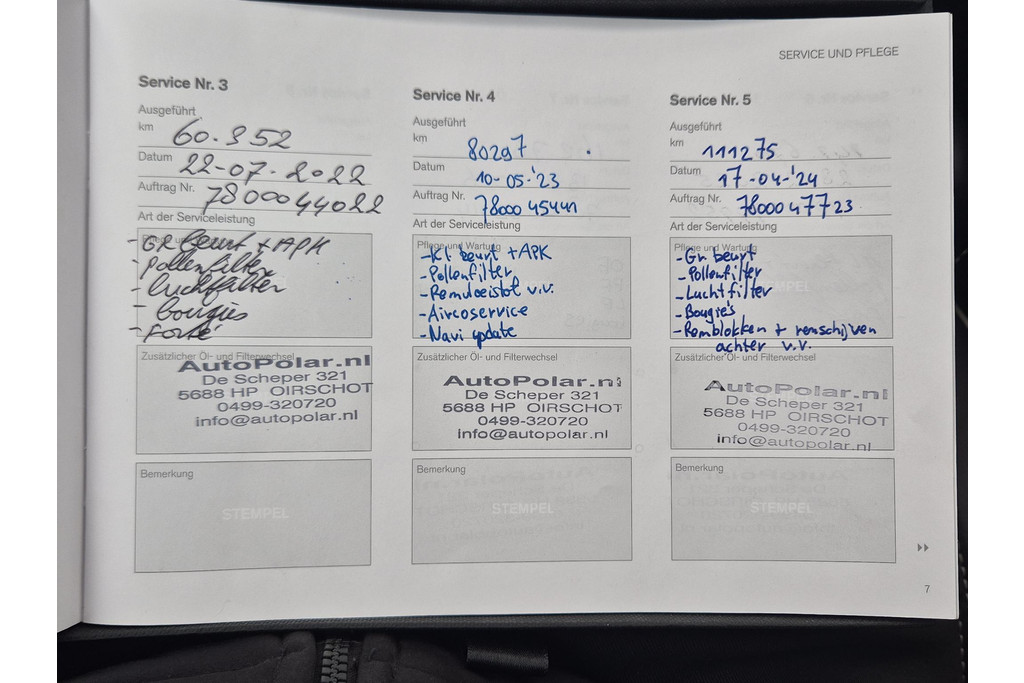 SERVICE UND PFLEGE
Service Nr. 3
Ausgeführt
km 60.952
Datum 22-07-2022
Auftrag Nr. 7800044022
Art der Serviceleistung
Pflege und Wartung
-GR beurt + APK
-pollenfilter
-luchtfilter
-bougies
-Forté
Zusätzlicher Öl- und Filterwechsel
AutoPolar.nl
De Scheper 321
5688 HP OIRSCHOT
0499-320720
info@autopolar.nl
Bemerkung
STEMPEL
Service Nr. 4
Ausgeführt
km 80297
Datum 10-05-'23
Auftrag Nr. 7800045441
Art der Serviceleistung
Pflege und Wartung
-Kl beurt +APK
-Pollenfilter
-Remvloeistof v.v.
-Aircoservice
-Navi update
Zusätzlicher Öl- und Filterwechsel
AutoPolar.nl
De Scheper 321
5688 HP OIRSCHOT
0499-320720
info@autopolar.nl
Bemerkung
STEMPEL
Service Nr. 5
Ausgeführt
km 111275
Datum 17-04-'24
Auftrag Nr. 7800047723
Art der Serviceleistung
Pflege und Wartung
-Gr beurt
-Pollenfilter
-Luchtfilter
-Bougie's
-Remblokken + remschijven
achter v.v.
Zusätzlicher Öl- und Filterwechsel
AutoPolar.nl
De Scheper 321
5688 HP OIRSCHOT
0499-320720
info@autopolar.nl
Bemerkung
STEMPEL
7